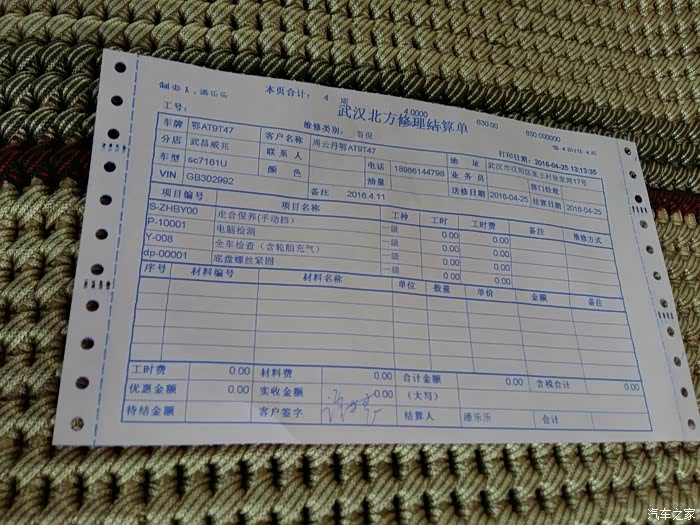 制表人:潘乐乐 本页合计: 4 项 4.0000 630.00 630.000000
武汉北方修理结算单
工号: 维修类别: 首保 打印日期:2016-04-25 13:13:35
车牌 鄂AT9T47 客户名称 周云丹鄂AT9T47 地 址
分店 武昌威兆 联系人 电话 18986144798 业务员 部门经理
车型 sc7161U 颜 色 油量 送修日期 2016-04-25 结算日期 2016-04-25
VIN GB302992 备注 2016.4.11
项目编号 项目名称 工种 工时 工时费 备注 维修方式
S-ZHBY00 走合保养(手动挡) 一级 0.00 0.00
P-10001 电脑检测 一级 0.00 0.00
Y-008 全车检查(含轮胎充气) 一级 0.00 0.00
dp-00001 底盘螺丝紧固 一级 0.00 0.00
序号 材料编号 材料名称 单位 数量 单价 金额 备注
工时费 0.00 材料费 0.00 合计金额 0.00 含税合计 0.00
优惠金额 0.00 实收金额 0.00 (大写)
待结金额 客户签字 结算人 潘乐乐 会计
汽车之家